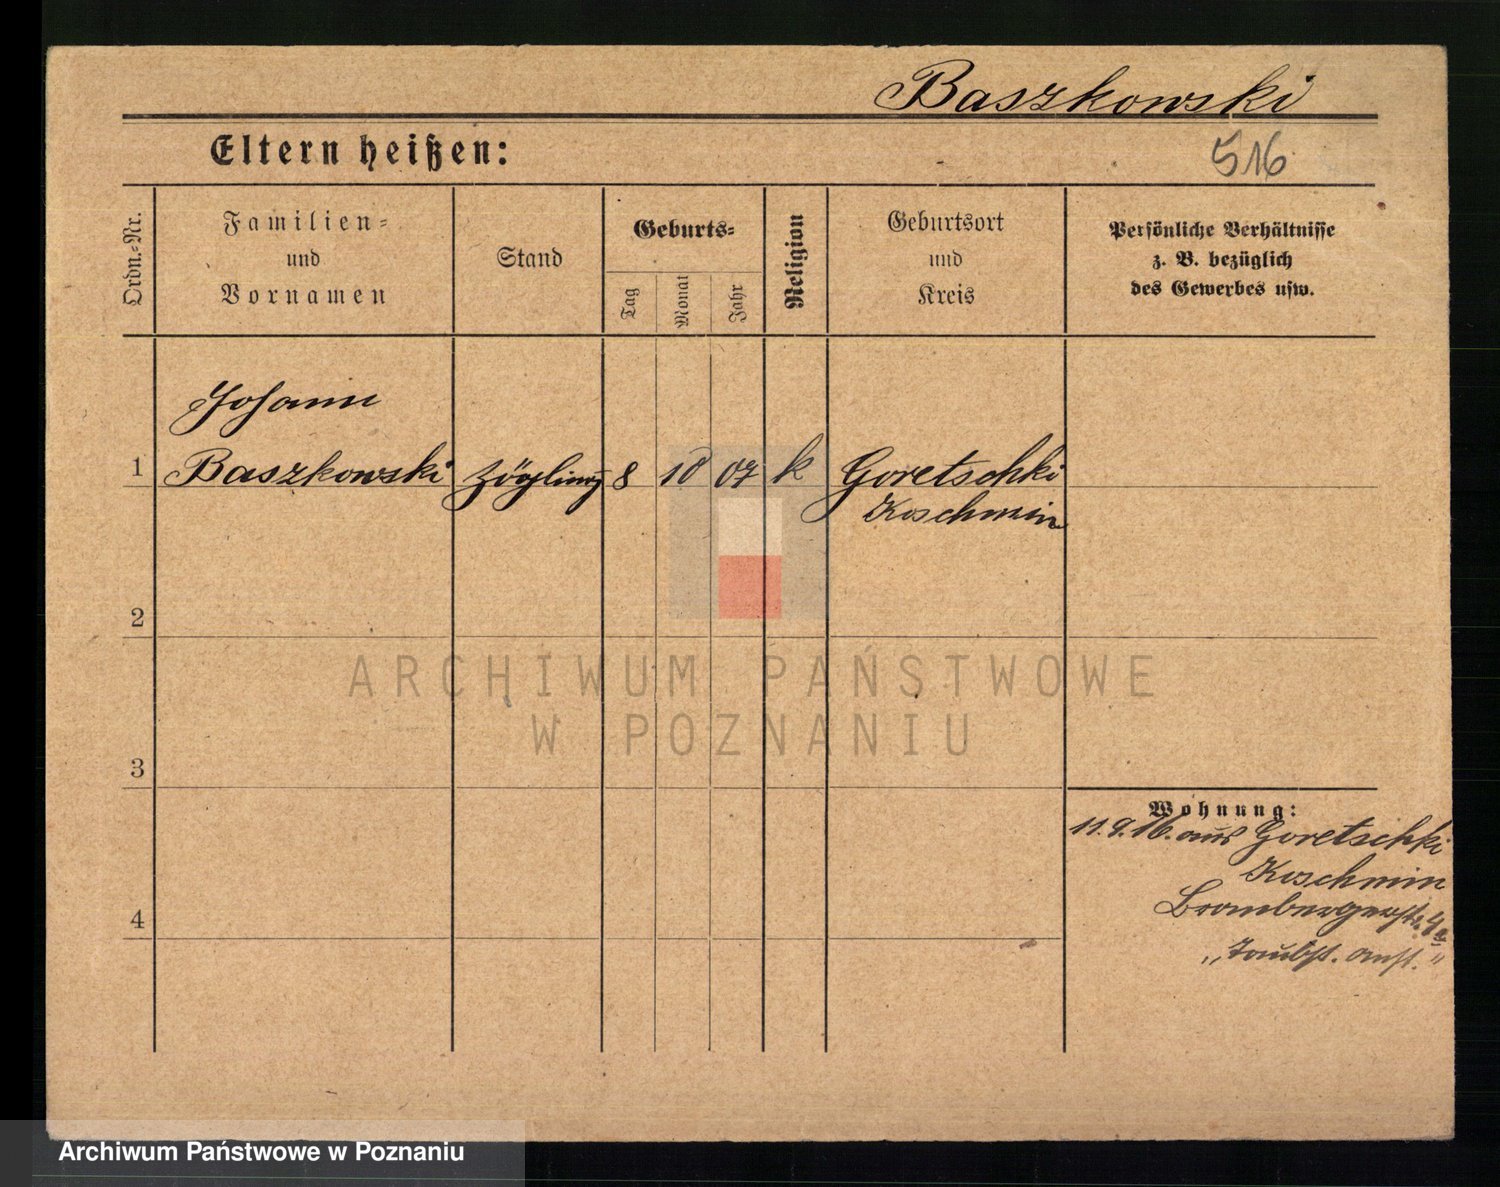 Baszkowski
Eltern heißen:
516
Ordn.-Nr.
Familien-
und
Vornamen
Stand
Geburts-
Tag
Monat
Jahr
Religion
Geburtsort
und
Kreis
Persönliche Verhältnisse
z. B. bezüglich
des Gewerbes usw.
Johann
1 Baszkowski Zögling 8 10 07 k Goretschki
Koschmin
2
3
4
Wohnung:
11.9.16. aus Goretschki
Koschmin
Brombergerstr. 4a
„Taubst. Anst."
ARCHIWUM PAŃSTWOWE
W POZNANIU
Archiwum Państwowe w Poznaniu